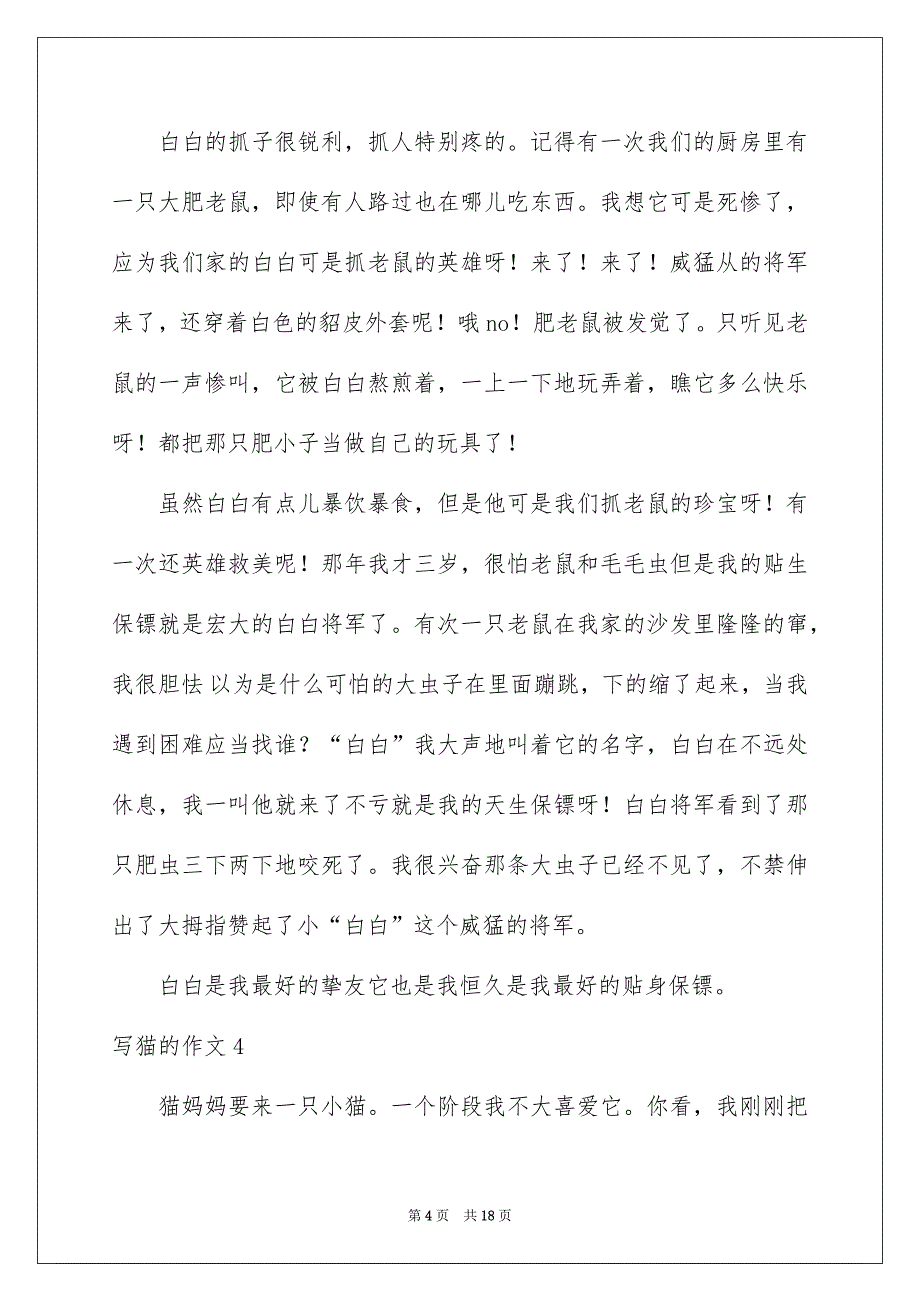 白白的抓子很锐利，抓人特别疼的。记得有一次我们的厨房里有
一只大肥老鼠，即使有人路过也在哪儿吃东西。我想它可是死惨了，
应为我们家的白白可是抓老鼠的英雄呀！来了！来了！威猛从的将军
来了，还穿着白色的貂皮外套呢！哦 no！肥老鼠被发觉了。只听见老
鼠的一声惨叫，它被白白熬煎着，一上一下地玩弄着，瞧它多么快乐
呀！都把那只肥小子当做自己的玩具了！
虽然白白有点儿暴饮暴食，但是他可是我们抓老鼠的珍宝呀！有
一次还英雄救美呢！那年我才三岁，很怕老鼠和毛毛虫但是我的贴生
保镖就是宏大的白白将军了。有次一只老鼠在我家的沙发里隆隆的窜，
我很胆怯 以为是什么可怕的大虫子在里面蹦跳，下的缩了起来，当我
遇到困难应当找谁？“白白”我大声地叫着它的名字，白白在不远处
休息，我一叫他就来了不亏就是我的天生保镖呀！白白将军看到了那
只肥虫三下两下地咬死了。我很兴奋那条大虫子已经不见了，不禁伸
出了大拇指赞起了小“白白”这个威猛的将军。
白白是我最好的挚友它也是我恒久是我最好的贴身保镖。
写猫的作文 4
猫妈妈要来一只小猫。一个阶段我不大喜爱它。你看，我刚刚把
第 4 页 共 18 页